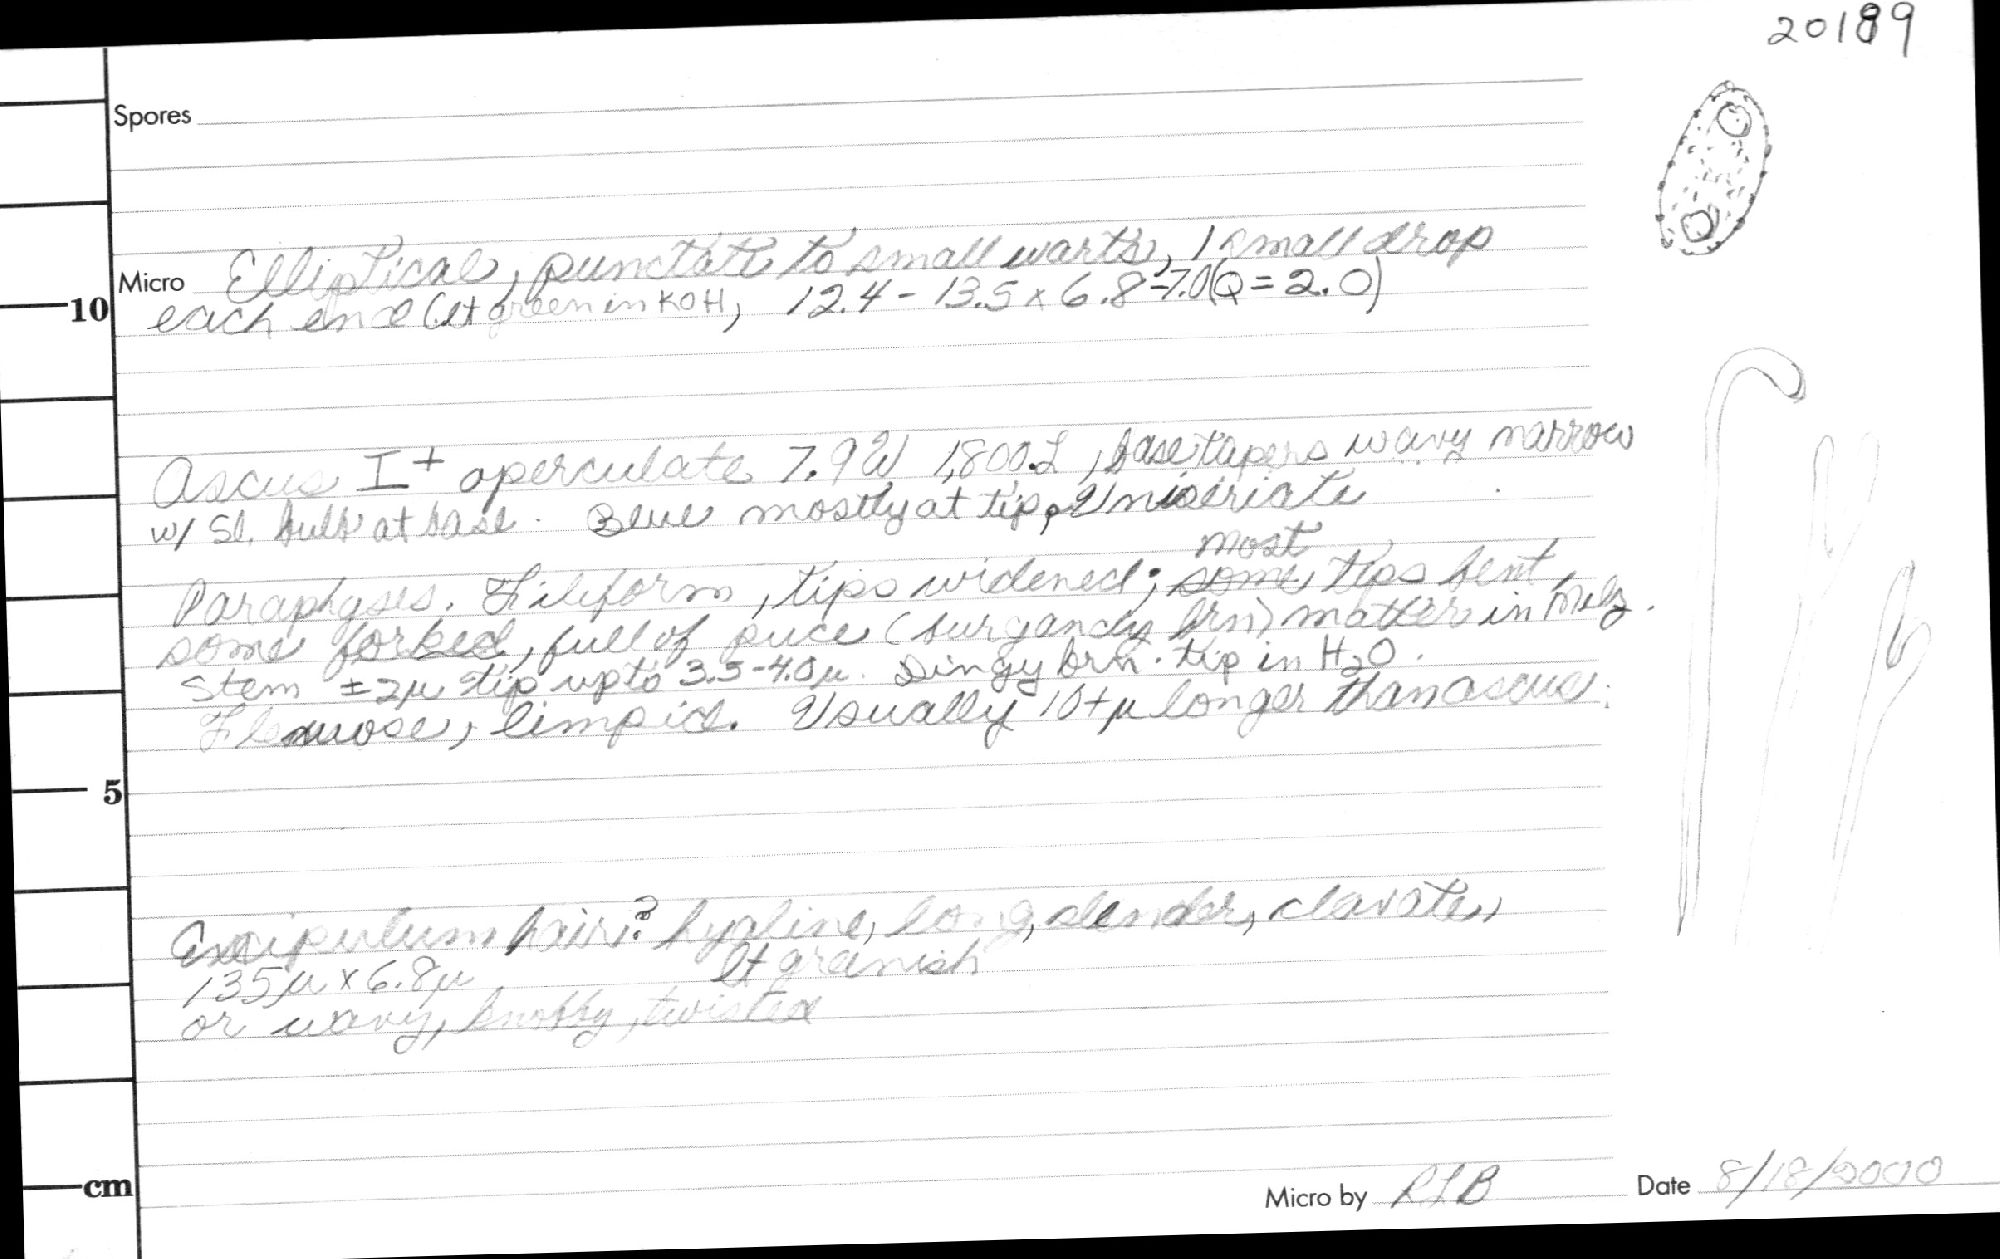 20189
Spores
Micro Elliptical, punctate to small warts, 1 small drop
each end (lt green in KOH, 12.4 - 13.5 x 6.8-7.0 (Q = 2.0)
10
Ascus I+ operculate 7.9 W 1,800.L, base tapers wavy narrow
w/ sl. bulb at base. Blue mostly at tip, Uniseriate
most
Paraphyses. Filiform, tips widened; some tips bent,
some forked, full of puce (burgandy brn) matter in Melz.
Stem ± 2µ tip up to 3.5-4.0µ. Dingy brn. tip in H2O.
Flexuose, limpid. Usually 10+µ longer than ascus.
5
Excipulum hair? hyaline, long, slender, clavate,
135µ x 6.8µ lt greenish
or wavy, knobby, twisted
cm
Micro by RLB Date 8/18/2000